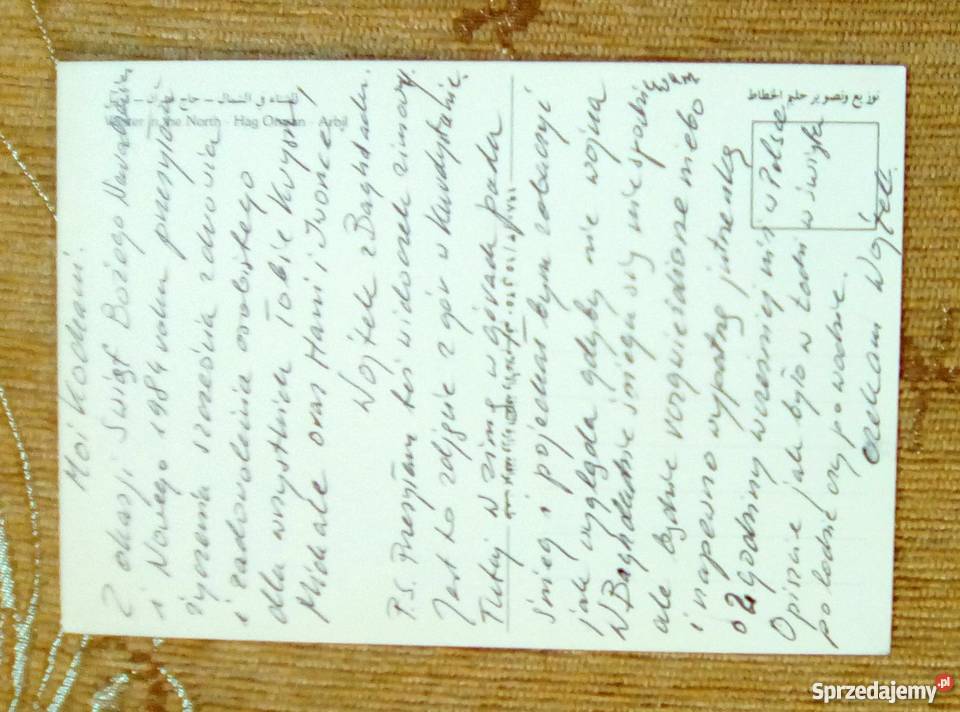 توزيع وتصوير حليم الخطاط
Winter in the North - Hag Omran - Arbil
Moi Kochani.
Z okazji Świąt Bożego Narodzenia
i Nowego 1984 roku przesyłam
życzenia szczęścia zdrowia
i zadowolenia osobistego
dla wszystkich Tobie Krysiu,
Michale oraz Hani i Iwonce,
Wojtek z Baghdadu.
P.S. Przesyłam też widoczek zimowy.
Jest to zdjęcie z gór w Kurdystanie.
Tutaj w zimę w górach pada
śnieg i pojechał bym zobaczyć
jak wygląda gdyby nie wojna
W Baghdadzie śniegu się nie spodziewam
ale będzie rozgwieżdżone niebo
i napewno wypatrzę jutrzenkę
o 2 godziny wcześniej niż w Polsce
Opiszcie jak było w Łodzi w święta
czy
czekam Wojtek.
Sprzedajemy.pl